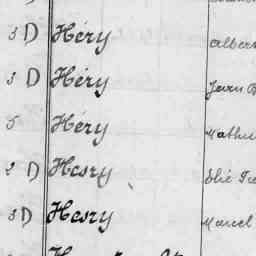 3 D Héry Albert
3 D Héry Jean
5 Héry Mathu
2 D Hesry Elie
3 D Hesry Marcel